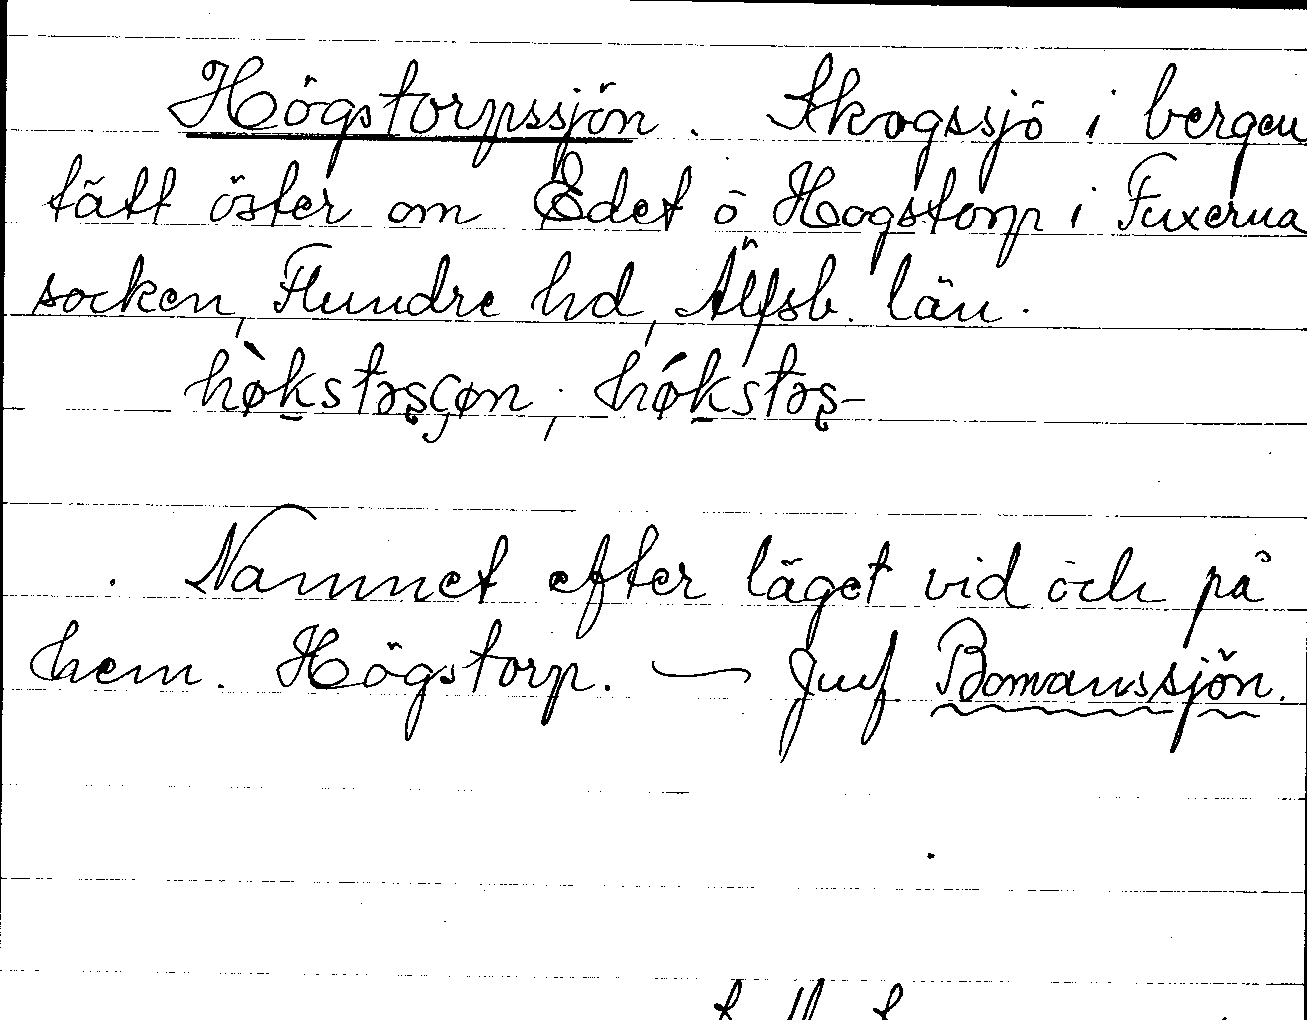 Högstorpssjön. Skogssjö i bergen
tätt öster om Edet o Hogstorp i Fuxerna
socken, Flundre hd, Älfsb. län.
hø̀kstɔʂçøn; hǿkstɔʂ-
Namnet efter läget vid och på
hem. Högstorp. — Jmf Bomanssjön.